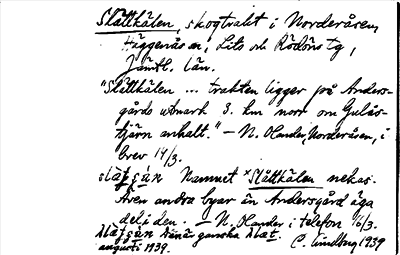 Slåttkälen, skogtrakt i Norderåsen,
Häggenås sn, Lits och Rödöns tg,
Jämtl. län.
"Slåttkälen ... trakten ligger på Anders-
gårds utmark 3. km norr om Gulås-
tjärn anhalt." – N. Olander, Norderåsen, i
brev 14/3.
Namnet × Slåttkälen nekas.
Även andra byar än Andersgård äga
del i den. – N. Olander i telefon 16/3.
ganska
augusti 1939. C. Lindberg 1939